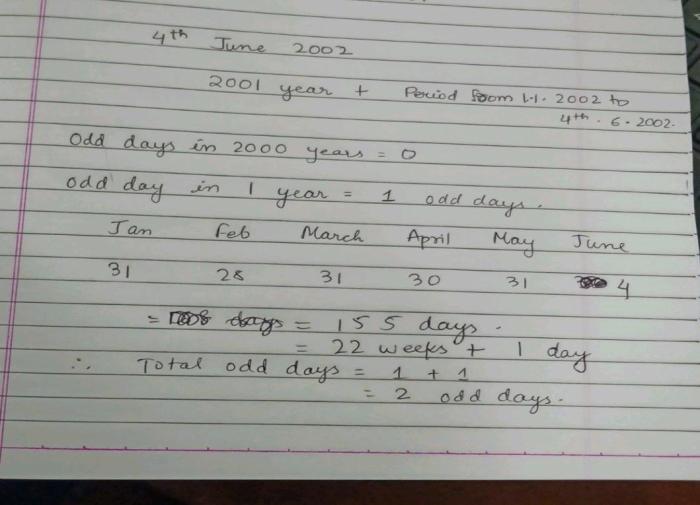 4th June 2002
2001 year + Period from 1.1.2002 to
4th.6.2002.
Odd days in 2000 years = 0
Odd day in 1 year = 1 odd days.
Jan Feb March April May June
31 28 31 30 31 4
= days = 155 days.
= 22 weeks + 1 day
∴ Total odd days = 1 + 1
= 2 odd days.